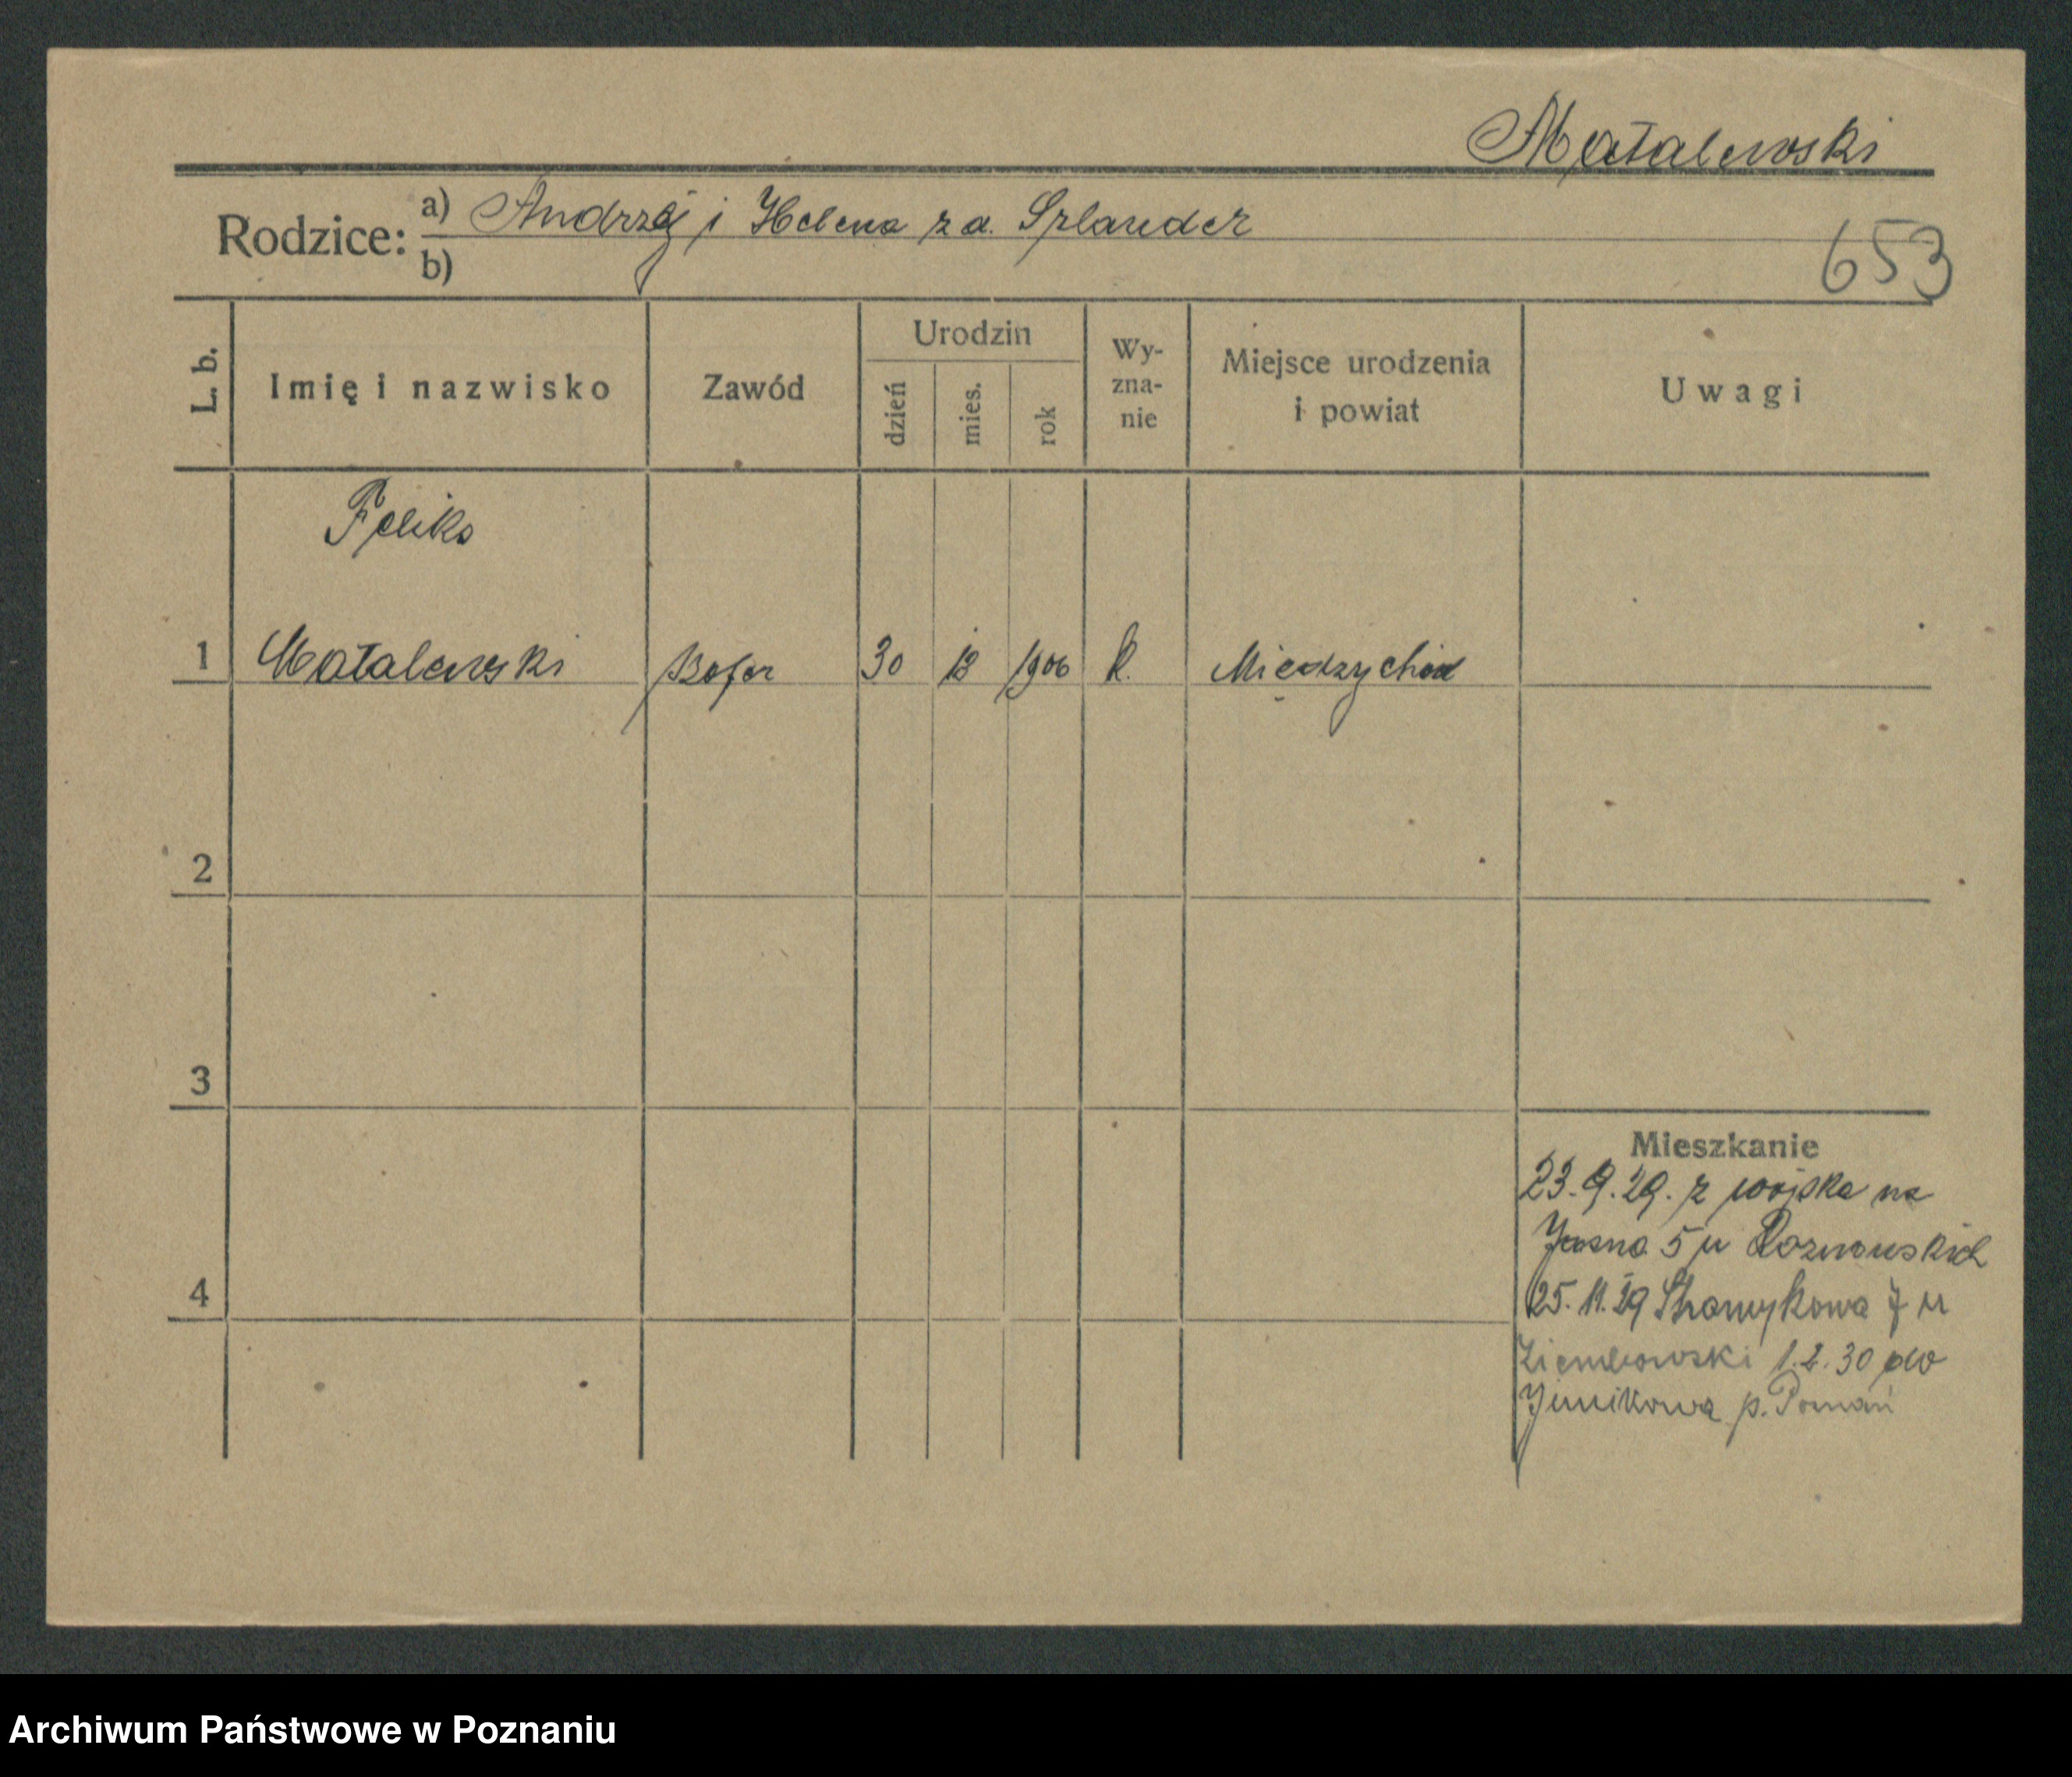 Matalewski
Rodzice: a) Andrzej i Helena z d. Szlauder
b)
653
L. b.
Imię i nazwisko
Zawód
Urodzin
dzień
mies.
rok
Wy-
zna-
nie
Miejsce urodzenia
i powiat
Uwagi
Feliks
1 Matalewski szofer 30 1906 k. Międzychód
2
3
4
Mieszkanie
23.9.29. z wojska na
Jasna 5 u
25.11.29 7 u
Ziembowski 1.2.30 do
Junikowa p. Poznań
Archiwum Państwowe w Poznaniu